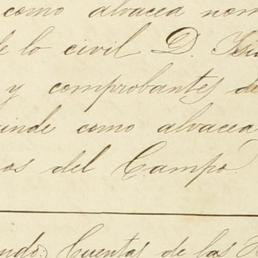 como albacea nom
de lo civil D.
y comprobantes de
rinde como albacea
os del Campo
ndo: Cuentas de las